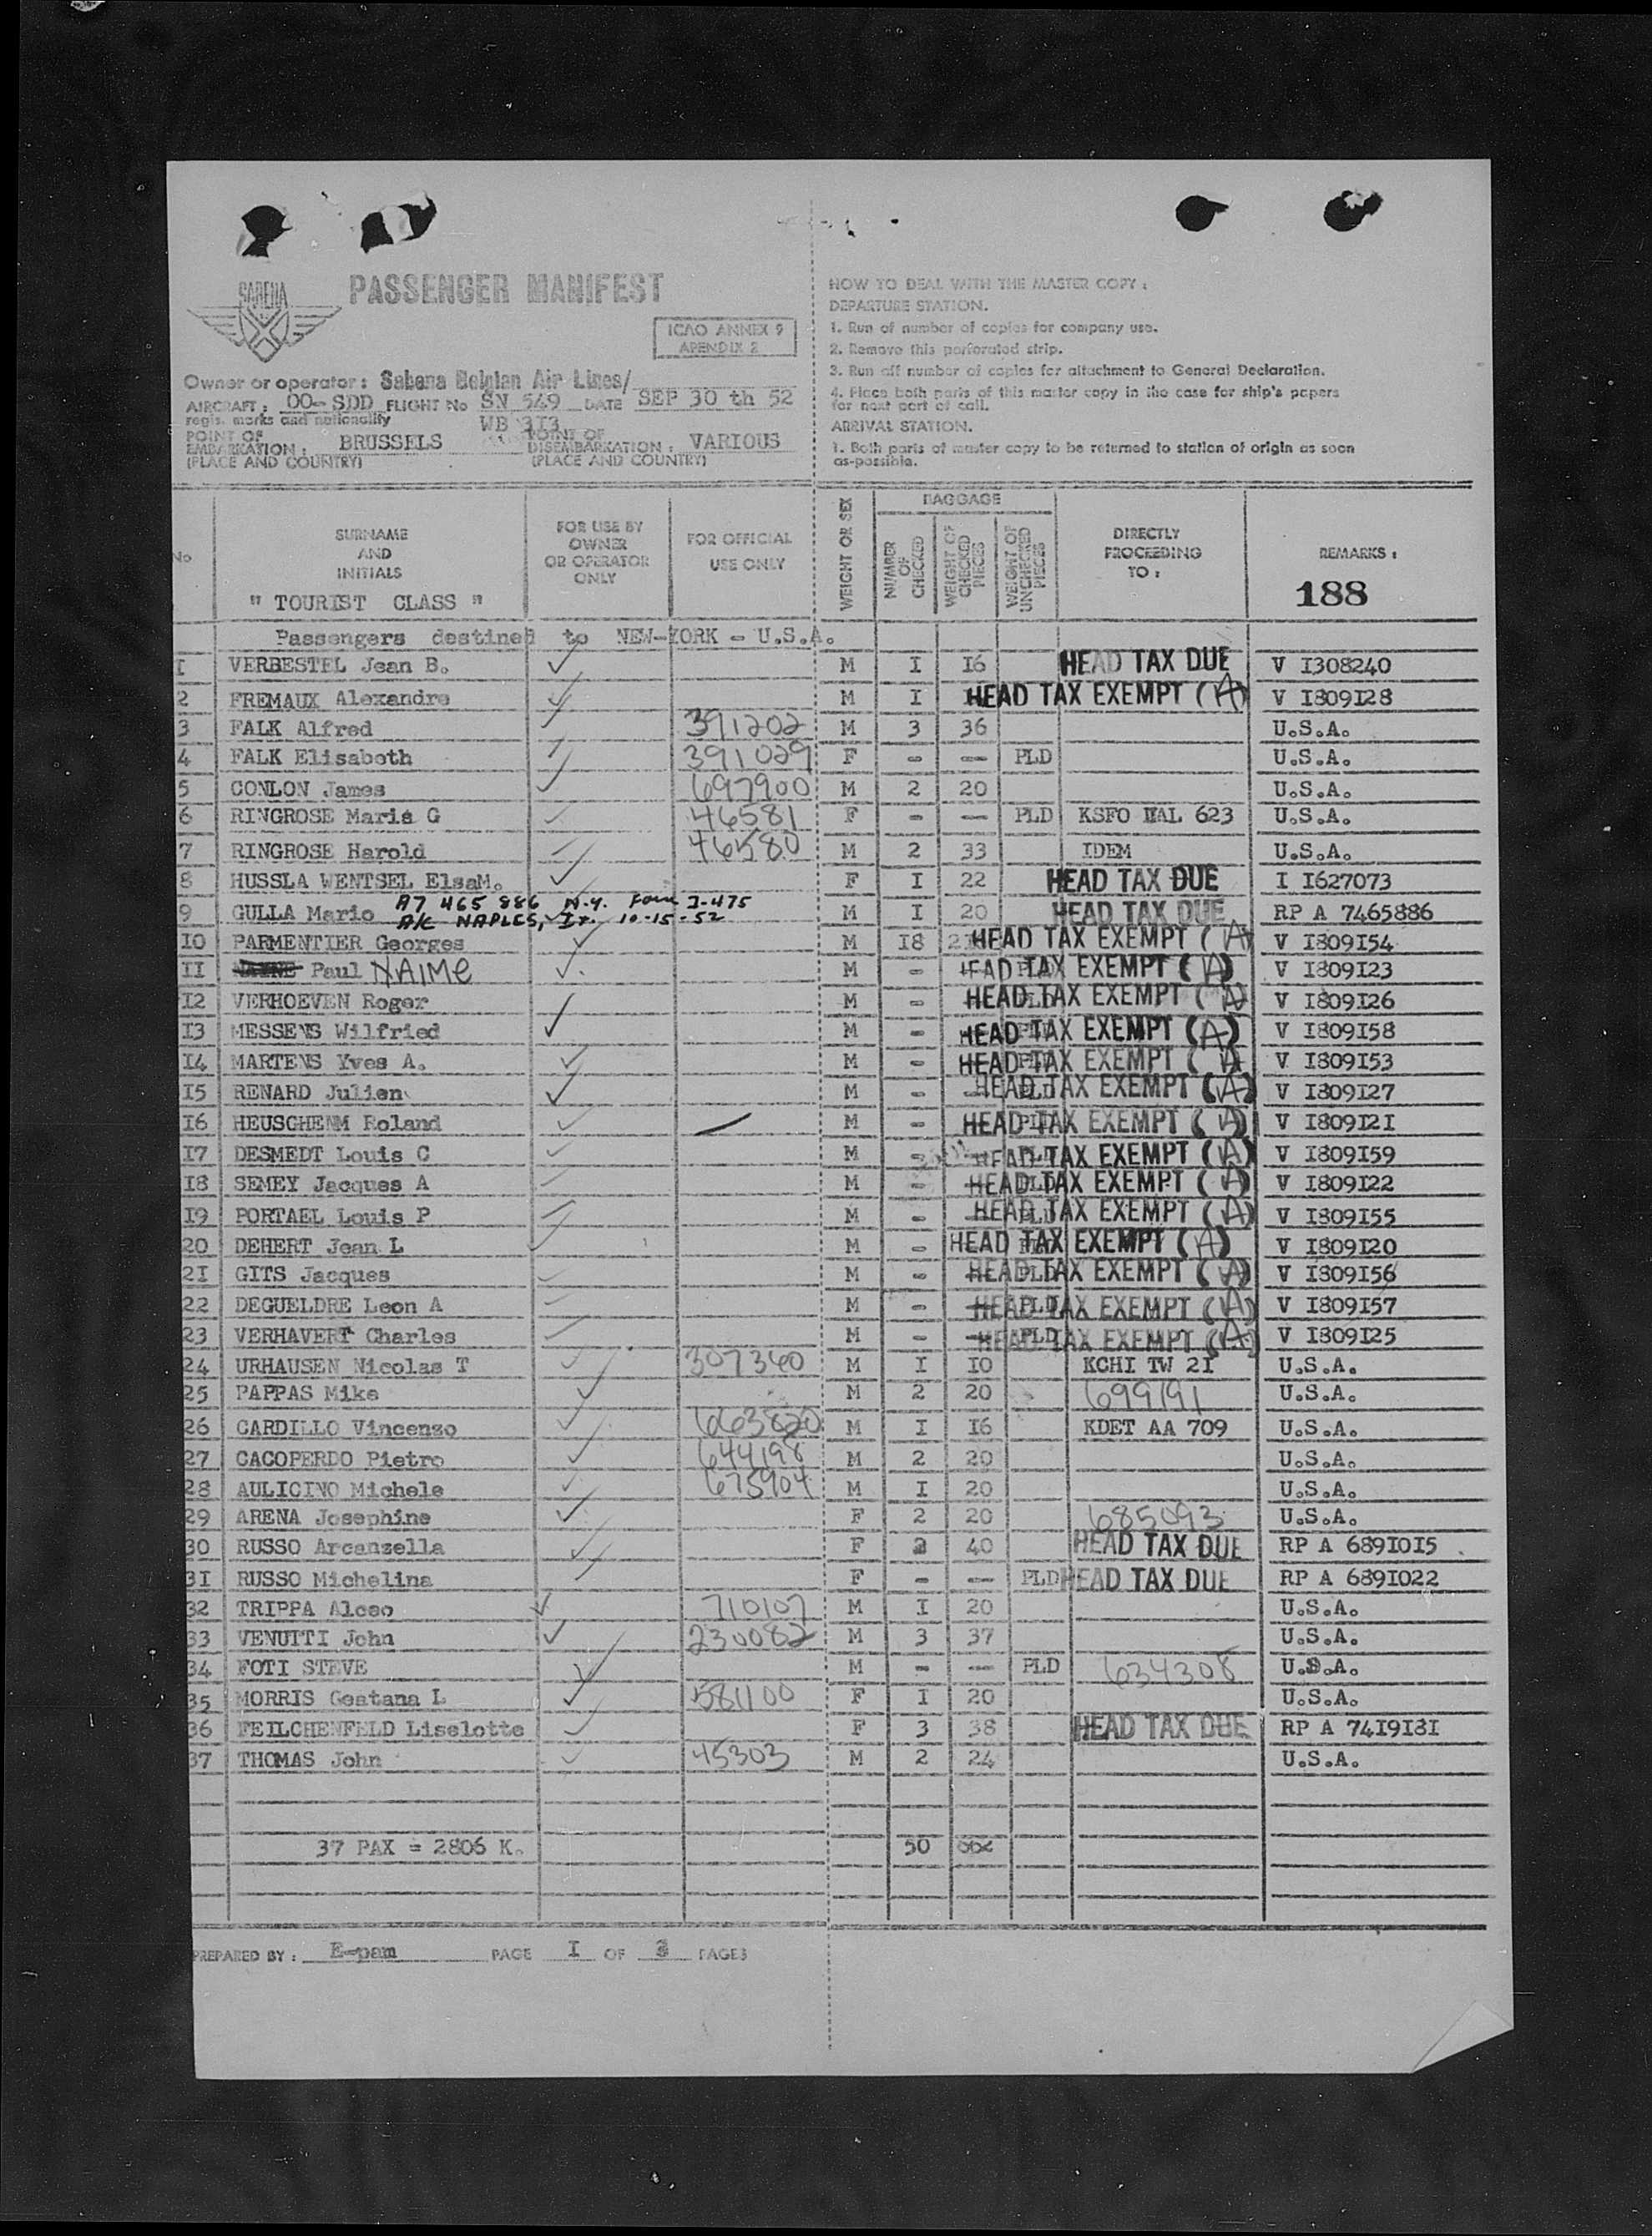 SABENA
PASSENGER MANIFEST
ICAO ANNEX 9
APENDIX 2
Owner or operator: Sabena Belgian Air Lines/
AIRCRAFT: OO-SDD FLIGHT No SN 549 DATE SEP 30 th 52
regis. marks and nationality WB 3I3
POINT OF EMBARKATION: BRUSSELS POINT OF DISEMBARKATION: VARIOUS
(PLACE AND COUNTRY) (PLACE AND COUNTRY)
HOW TO DEAL WITH THE MASTER COPY:
DEPARTURE STATION.
1. Run of number of copies for company use.
2. Remove this perforated strip.
3. Run off number of copies for attachment to General Declaration.
4. Place both parts of this master copy in the case for ship's papers
for next port of call.
ARRIVAL STATION.
1. Both parts of master copy to be returned to station of origin as soon
as-possible.
No SURNAME AND INITIALS FOR USE BY OWNER OR OPERATOR ONLY FOR OFFICIAL USE ONLY WEIGHT OR SEX BAGGAGE NUMBER OF CHECKED WEIGHT OF CHECKED PIECES WEIGHT OF UNCHECKED PIECES DIRECTLY PROCEEDING TO: REMARKS:
" TOURIST CLASS " 188
Passengers destined to NEW-YORK - U.S.A.
I VERBESTEL Jean B. M I I6 HEAD TAX DUE V I308240
2 FREMAUX Alexandre M I HEAD TAX EXEMPT (A) V I809I28
3 FALK Alfred 391202 M 3 36 U.S.A.
4 FALK Elisabeth 391029 F - -- PLD U.S.A.
5 CONLON James 697900 M 2 20 U.S.A.
6 RINGROSE Marie G 46581 F - -- PLD KSFO UAL 623 U.S.A.
7 RINGROSE Harold 46580 M 2 33 IDEM U.S.A.
8 HUSSLA WENTSEL ElsaM. F I 22 HEAD TAX DUE I I627073
A7 465 886 N.Y. Form I-475
9 GULLA Mario A/c NAPLES, It. 10-15-52 M I 20 HEAD TAX DUE RP A 7465886
I0 PARMENTIER Georges M I8 HEAD TAX EXEMPT (A) V I809I54
II Paul NAIME M - HEAD TAX EXEMPT (A) V I809I23
I2 VERHOEVEN Roger M - HEAD TAX EXEMPT (A) V I809I26
I3 MESSENS Wilfried M - HEAD TAX EXEMPT (A) V I809I58
I4 MARTENS Yves A. M - HEAD TAX EXEMPT (A) V I809I53
I5 RENARD Julien M - HEAD TAX EXEMPT (A) V I809I27
I6 HEUSGHEM Roland M - HEAD TAX EXEMPT (A) V I809I2I
I7 DESMEDT Louis C M - HEAD TAX EXEMPT (A) V I809I59
I8 SEMEY Jacques A M - HEAD TAX EXEMPT (A) V I809I22
I9 PORTAEL Louis P M - HEAD TAX EXEMPT (A) V I809I55
20 DEHERT Jean L M - HEAD TAX EXEMPT (A) V I809I20
2I GITS Jacques M - HEAD TAX EXEMPT (A) V I809I56
22 DEGUELDRE Leon A M - HEAD TAX EXEMPT (A) V I809I57
23 VERHAVERT Charles M - PLD HEAD TAX EXEMPT (A) V I809I25
24 URHAUSEN Nicolas T 307360 M I I0 KCHI TW 2I U.S.A.
25 PAPPAS Mike M 2 20 699191 U.S.A.
26 CARDILLO Vincenso 663820 M I I6 KDET AA 709 U.S.A.
27 CACOPERDO Pietro 644198 M 2 20 U.S.A.
28 AULICINO Michele 675904 M I 20 U.S.A.
29 ARENA Josephine F 2 20 685093 U.S.A.
30 RUSSO Arcanzella F 2 40 HEAD TAX DUE RP A 689I0I5
3I RUSSO Michelina F - -- PLD HEAD TAX DUE RP A 689I022
32 TRIPPA Alceo 710107 M I 20 U.S.A.
33 VENUTTI John 230082 M 3 37 U.S.A.
34 FOTI STEVE M - -- PLD 634308 U.S.A.
35 MORRIS Geatana L 581100 F I 20 U.S.A.
36 FEILCHENFELD Liselotte F 3 38 HEAD TAX DUE RP A 74I9I3I
37 THOMAS John 45303 M 2 24 U.S.A.
37 PAX = 2806 K. 50
PREPARED BY: E-pam PAGE I OF 3 PAGES